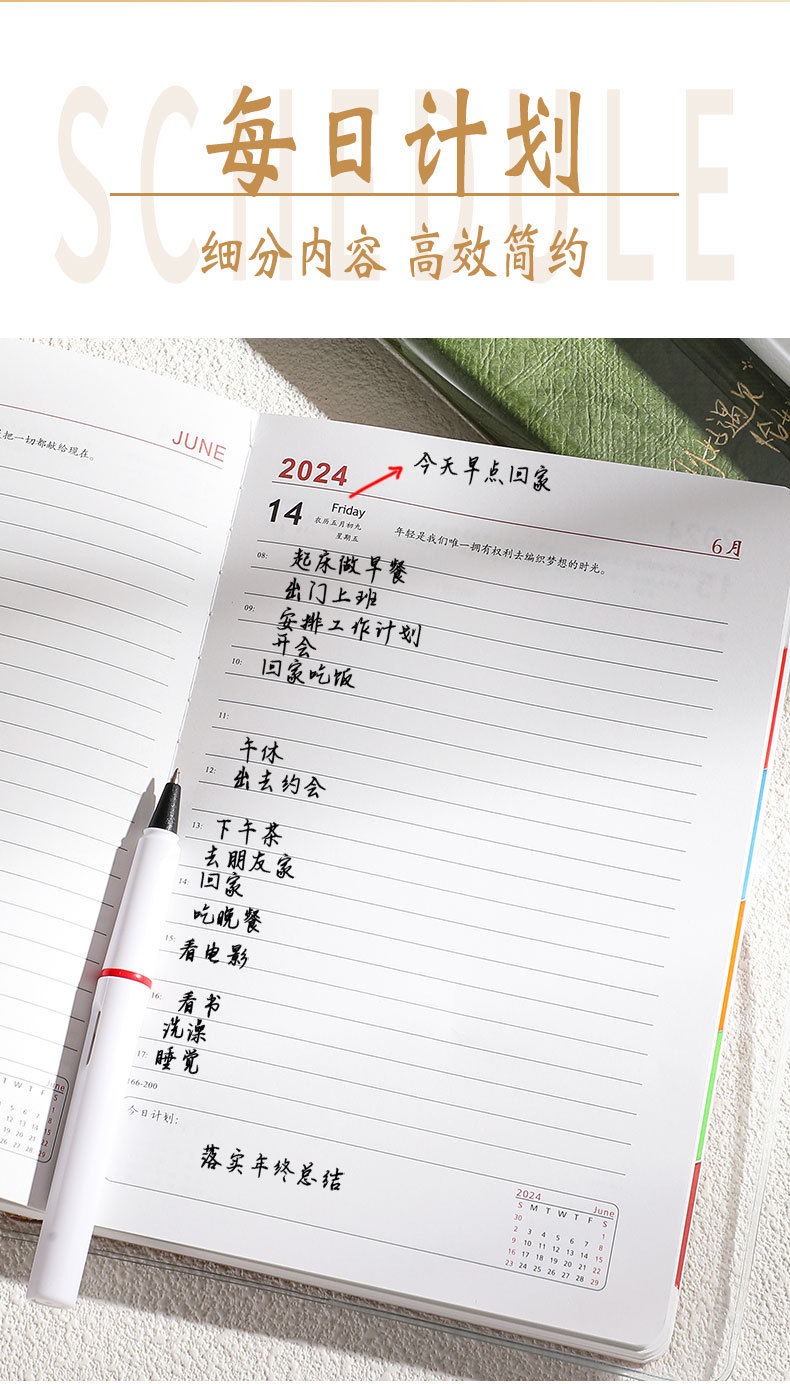 SCHEDULE
每日计划
细分内容 高效简约
把一切都献给现在。
JUNE
2024
今天早点回家
14
Friday
农历五月初九
星期五
年轻是我们唯一拥有权利去编织梦想的时光。
6月
08:
起床做早餐
出门上班
09:
安排工作计划
开会
10:
回家吃饭
11:
午休
12:
出去约会
13:
下午茶
去朋友家
14:
回家
吃晚餐
15:
看电影
16:
看书
洗澡
17:
睡觉
166-200
今日计划:
落实年终总结
2024 June
S M T W T F S
30 1
2 3 4 5 6 7 8
9 10 11 12 13 14 15
16 17 18 19 20 21 22
23 24 25 26 27 28 29
June
T W T F S